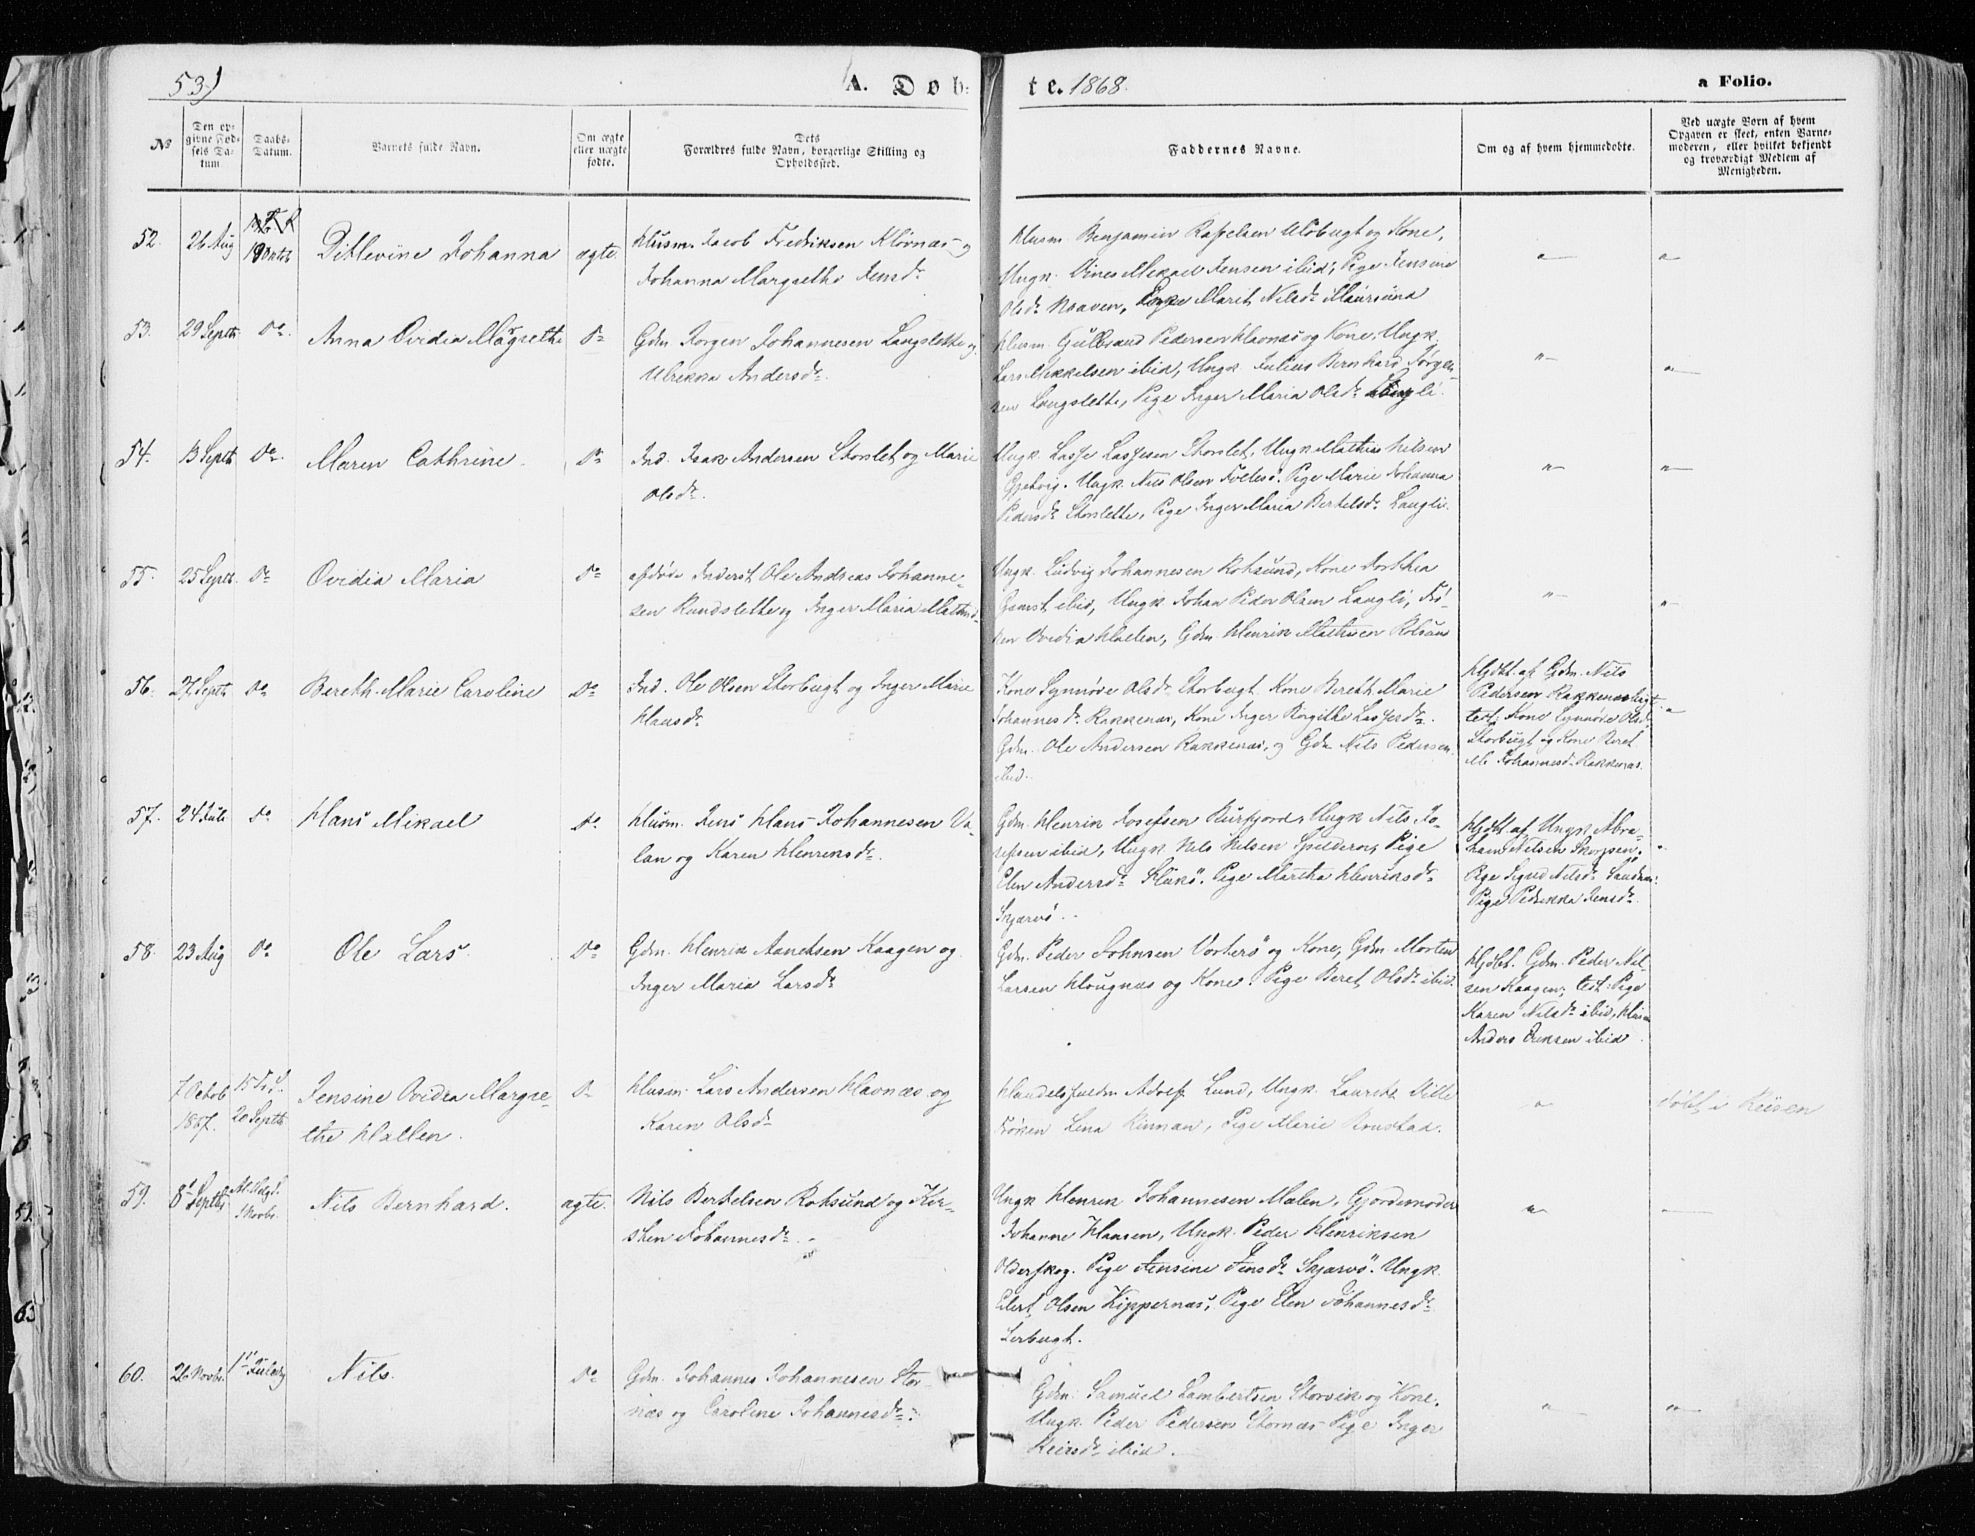 531
A. Døb-
te. 1868.
a Folio.
No
Den op-
givne Fød-
sels Da-
tum.
Daabs-
Datum.
Barnets fulde Navn.
Om ægte
eller uægte
fødte.
Dets
Forældres fulde Navn, borgerlige Stilling og
Opholdssted.
Faddernes Navne.
Om og af hvem hjemmedøbte.
Ved uægte Børn af hvem
Opgaven er skeet, enten Barne-
moderen, eller hvilket bekjendt
og troværdigt Medlem af
Menigheden.
52.
26 Aug
18 Oktob
Ditlevine Johanna
ægte
Husm. Jacob Fredriksen Klovnæs og
Johanna Margrethe Jensdr
Husm. Benjamin Rasselsen Uløbugt og Kone,
Ungk. Mikael Jensen ibid, Pige Jensine
Olsdr Kraaven, Marit Nilsdr Maursund
53.
29 Septb
Do.
Anna Ovidia Magrethe
Do
Gdm Jørgen Johannesen Langslette og
Ulrikka Andersdr.
Husm. Gulbrand Pedersen Havnæs og Kone, Ungk.
Lars Mikkelsen ibid, Ungk Julius Bernhard Jørgen-
sen Langslette, Pige Inger Maria Olsdr Langli.
54.
13 Septb
Do.
Maren Cathrine.
Do
Ind. Isak Andersen Storslet og Marie
Olsdr.
Ungk. Lasse Lassesen Storslet, Ungk Mathis Nilsen
Ungk. Nils Olsen Pige Marie Johanna
Pedersdr Storslette, Pige Inger Maria Bertelsdr Langli.
55.
25 Septb.
Do
Ovidia Maria
Do
afdøde Inderst Ole Andreas Johanne-
sen Rundslette og Inger Maria
Ungk. Ludvig Johannesen Rotsund, Kone Dorthea
ibid, Ungk Johan Peder Olsen Langli, Frø-
ken Ovidia Hallen, Gdm Henrik Mathisen Rotsund
56.
27 Septb
Do
Bereth Marie Caroline
Do.
Ind. Ole Olsen Storbugt og Inger Marie
Hansdr
Kone Synnøve Olsdr Storbugt. Kone Bereth Marie
Johannesdr Rakkenæs, Kone Inger Birgithe Lassesdr.
Gdm. Ole Andersen Rakkenæs, og Gdm Nils Pedersen
ibid.
Hjdbt. af Gdm. Nils
Pedersen Rakkenæs
test: Kone Synnøve Olsdr
Storbugt og Kone Beret
Johannesdr Rakkenæs.
57.
24 Juli
Do
Hans Mikael
Do.
Husm. Jens Hans Johannesen Va-
lan og Karen Henriksdr.
Gdm. Henrik Josefsen Burfjord, Ungk Nils Jo-
sefsen ibid, Ungk Nils Nilsen Spilderen, Pige
Elen Andersdr Pige Martha Henriksdr
Skjærvø.
Hjdbt. af Ungk Abra-
ham Nilsen
Pige Sigrid Nilsdr
Pige Pedrikka Jensdr.
58.
23 Aug
Do
Ole Lars.
Do
Gdm. Henrik Aanetsen Kaagen og
Inger Maria Larsdr
Gdm. Peder Johnsen Vorterø og Kone, Gdm. Morten
Larsen Hougnæs og Kone. Pige Beret Olsdr ibid.
Hjdbt. Gdm. Peder Nil-
sen Kaagen; test: Pige
Karen Nilsdr ibid, Husm
Anders Eriksen ibid.
7 Octob
1867.
20 Septb
Jensine Ovidia Margre-
the Hallen.
Do
Husm. Lars Andersen Havnæs og
Karen Olsdr
Handelsfuldm. Adolf Lund, Ungk. Lauritz Dille
Frøken Lena Kinnan, Pige Marie Ronstad.
Døbt i Keisen
59.
8 Septbr
1 Novbr.
Nils Bernhard.
ægte.
Nils Bertelsen Rotsund og Kir-
sten Johannesdr.
Ungk Henrik Johannesen Mælen, Gjordemoder
Johanne Hansen, Ungk. Peder Henriksen
Olderskog. Pige Jensine Jensdr Skjærvø. Ungk.
Edert Olsen Kippernæs, Pige Elen Johannesdr
Lerbugt.
60.
26 Novbr.
1ste Juledg
Nils.
Do
Gdm. Johannes Johannesen Stor-
næs og Caroline Johannesdr.
Gdm. Samuel Lambertsen Storvik og Kone.
Ungk. Peder Pedersen Stornæs Pige Inger
ibid.